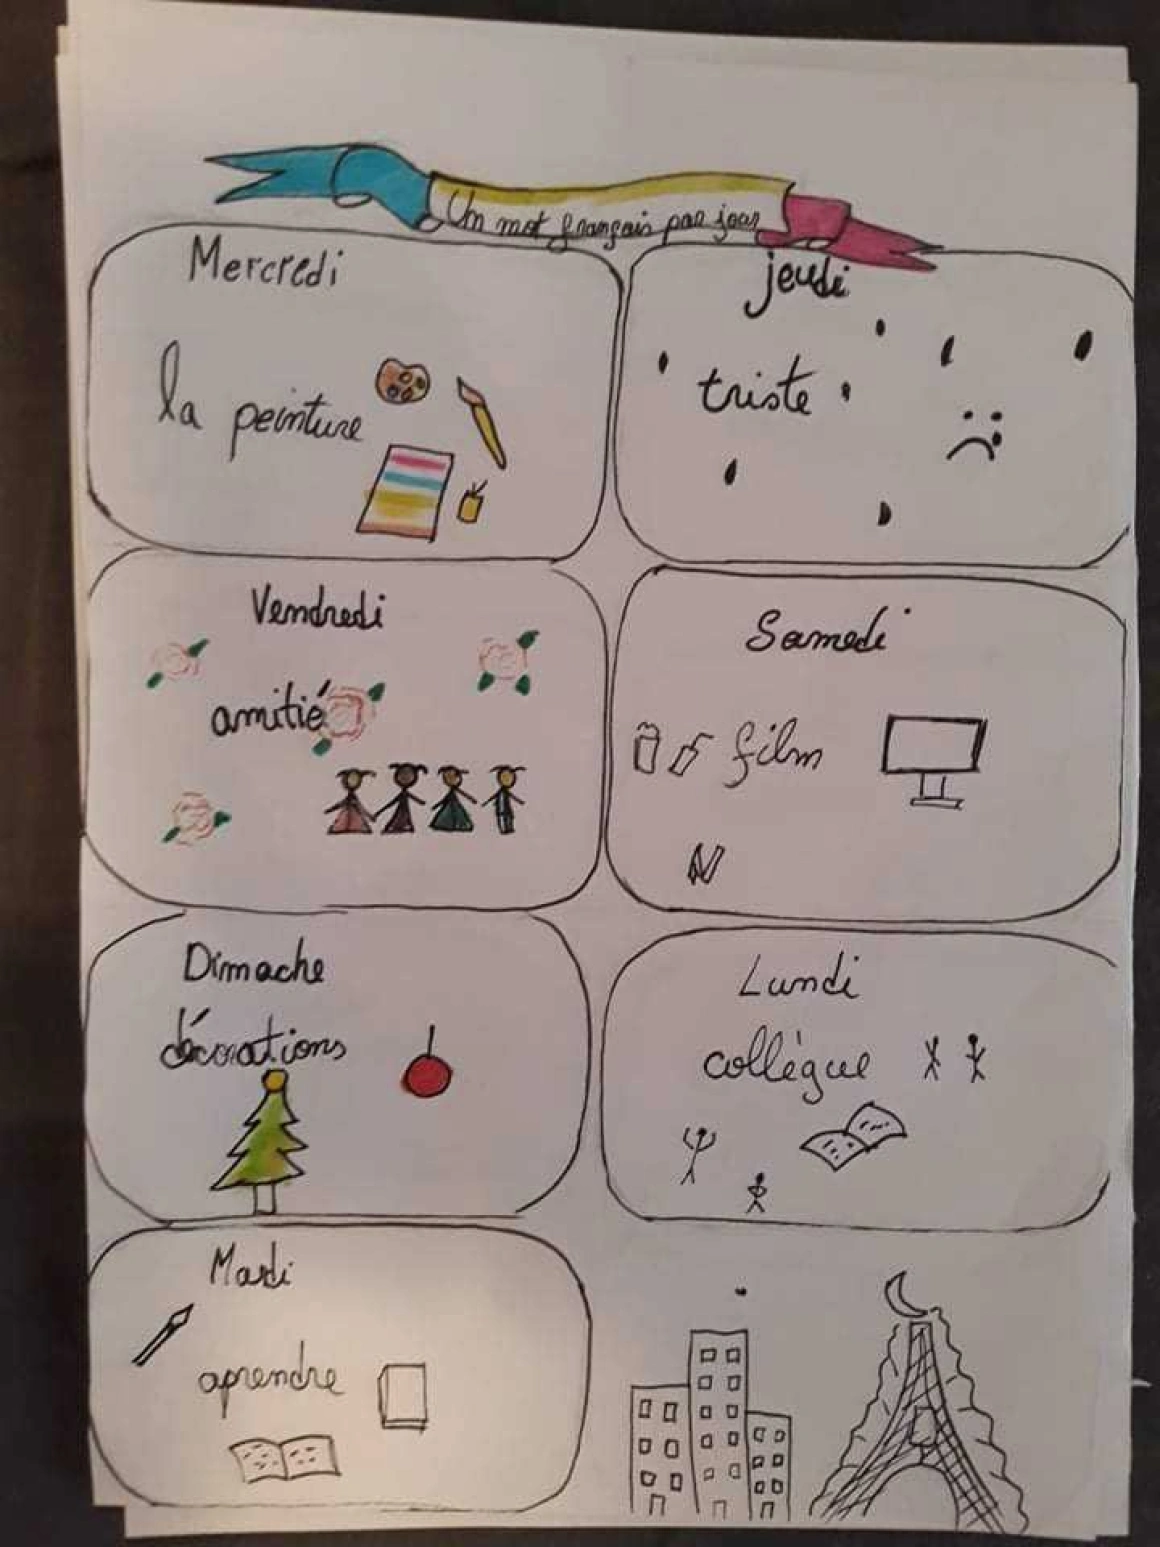 Un mot français par jour
Mercredi
la peinture
jeudi
triste
Vendredi
amitié
Samedi
film
Dimache
décorations
Lundi
collègue
Mardi
aprendre